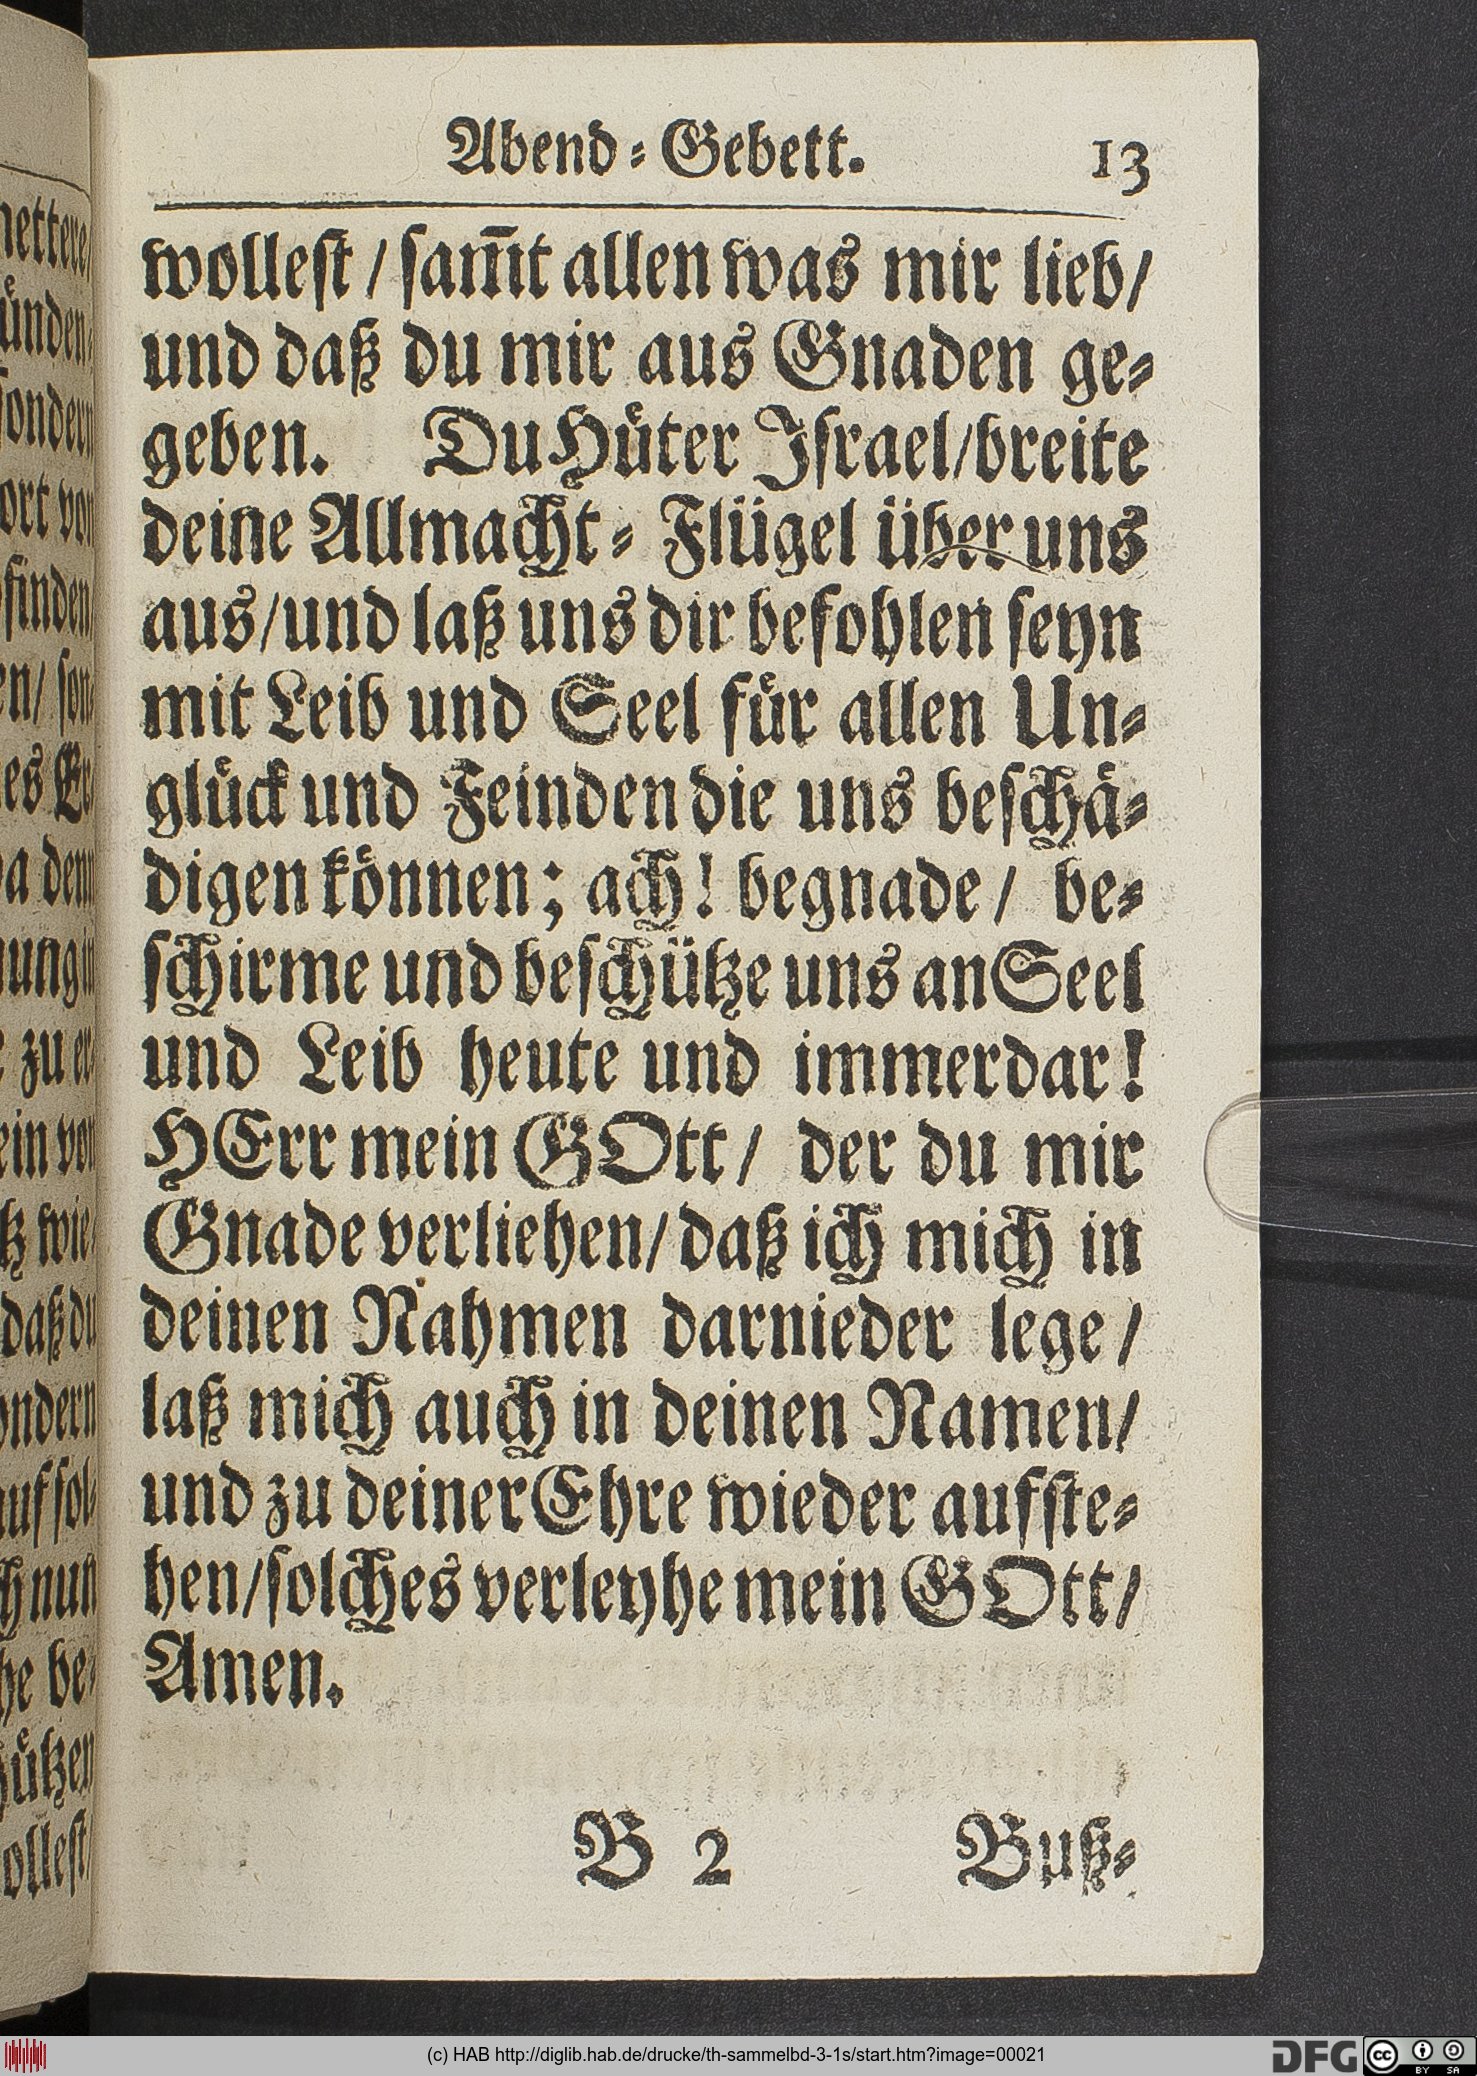 Abend⸗Gebett. 13
wollest / sam̄t allen was mir lieb /
und daß du mir aus Gnaden ge⸗
geben. Du Huͤter Israel / breite
deine Allmacht⸗Flügel über uns
aus / und laß uns dir befohlen seyn
mit Leib und Seel fuͤr allen Un⸗
gluͤck und Feinden die uns beschaͤ⸗
digen koͤnnen; ach! begnade / be⸗
schirme und beschütze uns an Seel
und Leib heute und immerdar!
HErr mein GOtt / der du mir
Gnade verliehen / daß ich mich in
deinen Nahmen darnieder lege /
laß mich auch in deinen Namen /
und zu deiner Ehre wieder aufste⸗
hen / solches verleyhe mein GOtt /
Amen.
B 2 Buß⸗
(c) HAB http://diglib.hab.de/drucke/th-sammelbd-3-1s/start.htm?image=00021
DFG cc BY SA